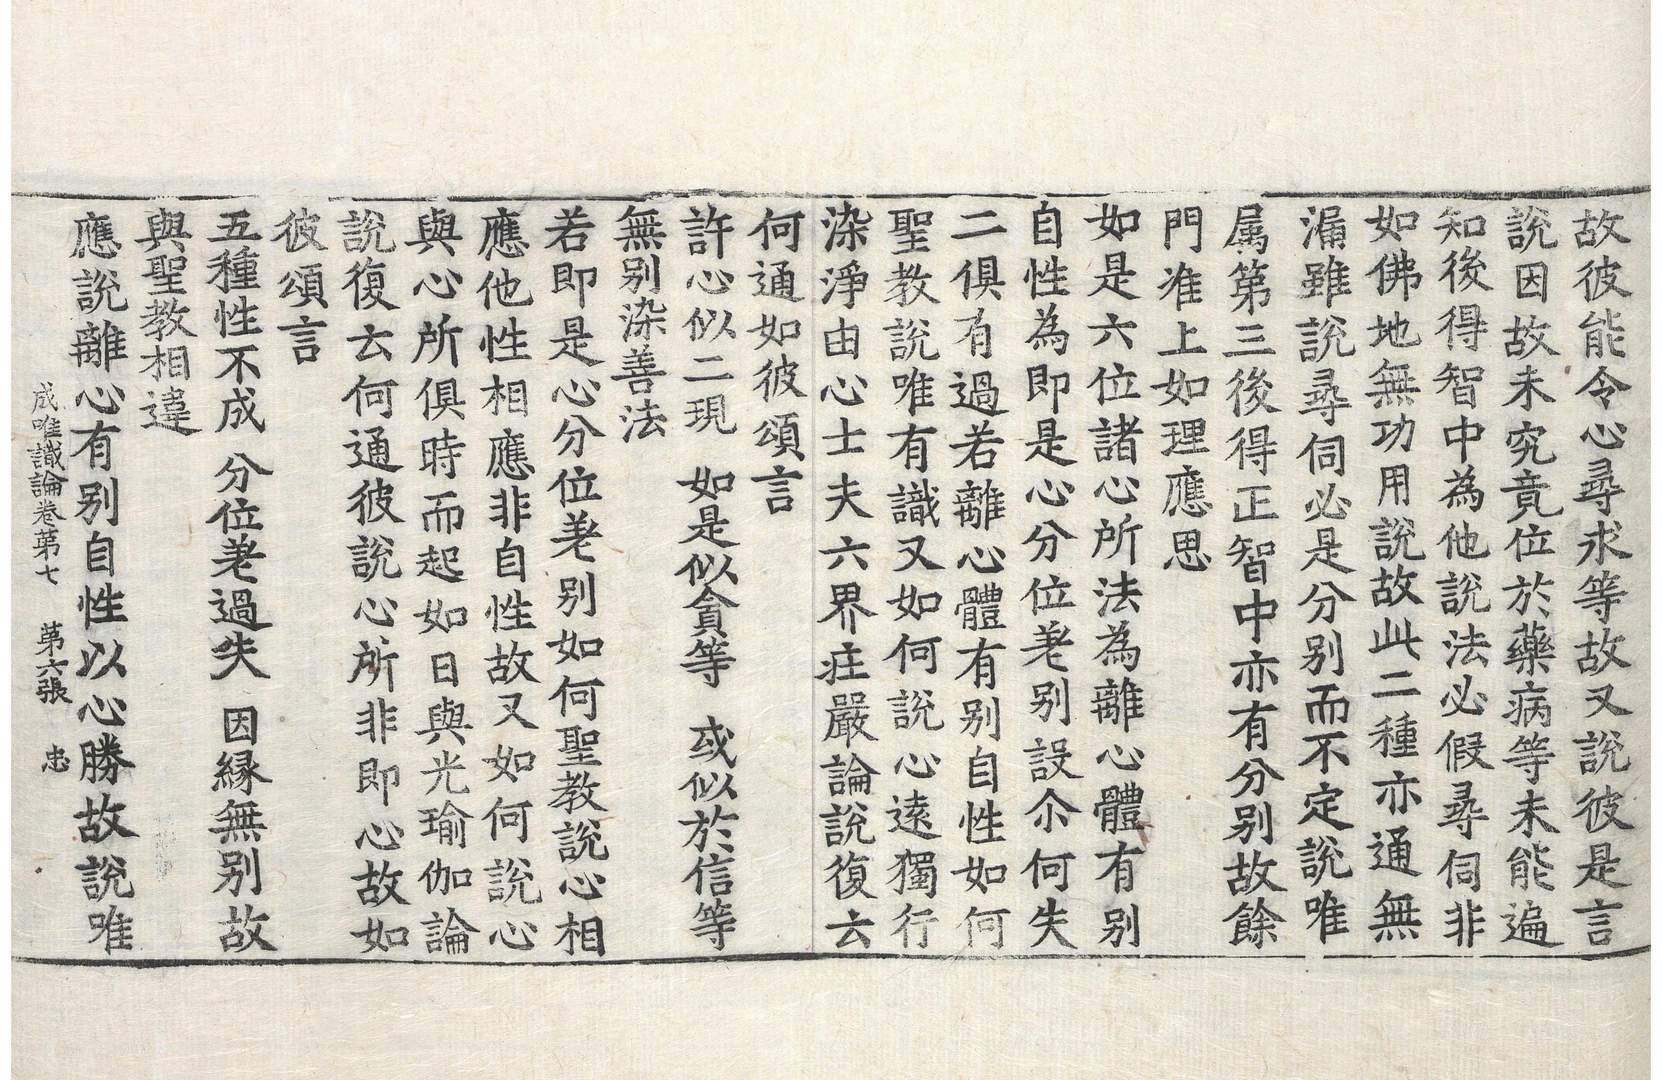 故彼能令心尋求等故又說彼是言
說因故未究竟位於藥病等未能遍
知後得智中為他說法必假尋伺非
如佛地無功用說故此二種亦通無
漏雖說尋伺必是分別而不定說唯
属第三後得正智中亦有分別故餘
門准上如理應思
如是六位諸心所法為離心體有別
自性為即是心分位差別設尒何失
二俱有過若離心體有別自性如何
聖教說唯有識又如何說心遠獨行
染淨由心士夫六界莊嚴論說復云
何通如彼頌言
許心似二現　如是似貪等　或似於信等
無別染善法
若即是心分位差別如何聖教說心相
應他性相應非自性故又如何說心
與心所俱時而起如日與光瑜伽論
說復云何通彼說心所非即心故如
彼頌言
五種性不成　分位差過失　因緣無別故
與聖教相違
應說離心有別自性以心勝故說唯
成唯識論卷第七　第六張　忠